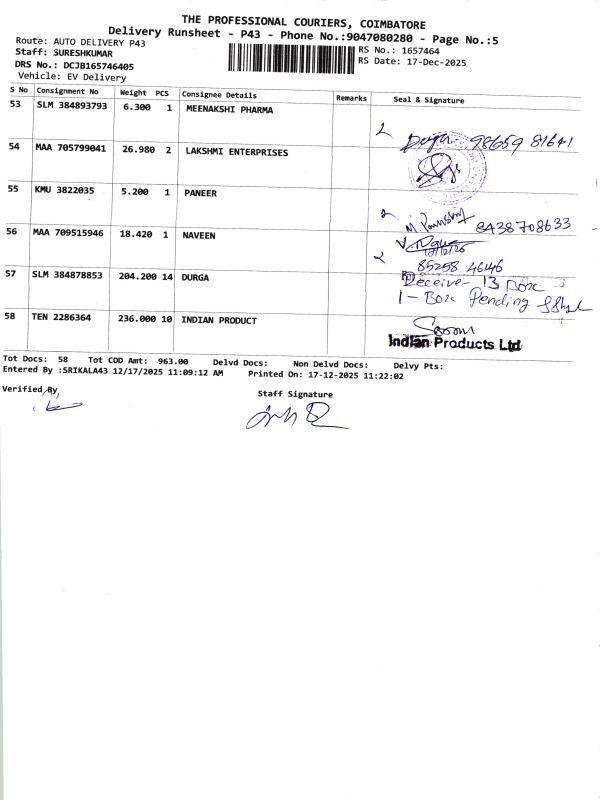 THE PROFESSIONAL COURIERS, COIMBATORE
Delivery Runsheet - P43 - Phone No.:9047080280 - Page No.:5
Route: AUTO DELIVERY P43
RS No.: 1657464
Staff: SURESHKUMAR
RS Date: 17-Dec-2025
DRS No.: DCJB165746405
Vehicle: EV Delivery
S No Consignment No Weight PCS Consignee Details Remarks Seal & Signature
53 SLM 384893793 6.300 1 MEENAKSHI PHARMA
98659 81641
54 MAA 705799041 26.980 2 LAKSHMI ENTERPRISES
55 KMU 3822035 5.200 1 PANEER
8438708633
56 MAA 709515946 18.420 1 NAVEEN
85258 46146
57 SLM 384878853 204.200 14 DURGA
Receive - 13 Box
1 - Box Pending
58 TEN 2286364 236.000 10 INDIAN PRODUCT
Indian Products Ltd
Tot Docs: 58 Tot COD Amt: 963.00 Delvd Docs: Non Delvd Docs: Delvy Pts:
Entered By :SRIKALA43 12/17/2025 11:09:12 AM Printed On: 17-12-2025 11:22:02
Verified By
Staff Signature